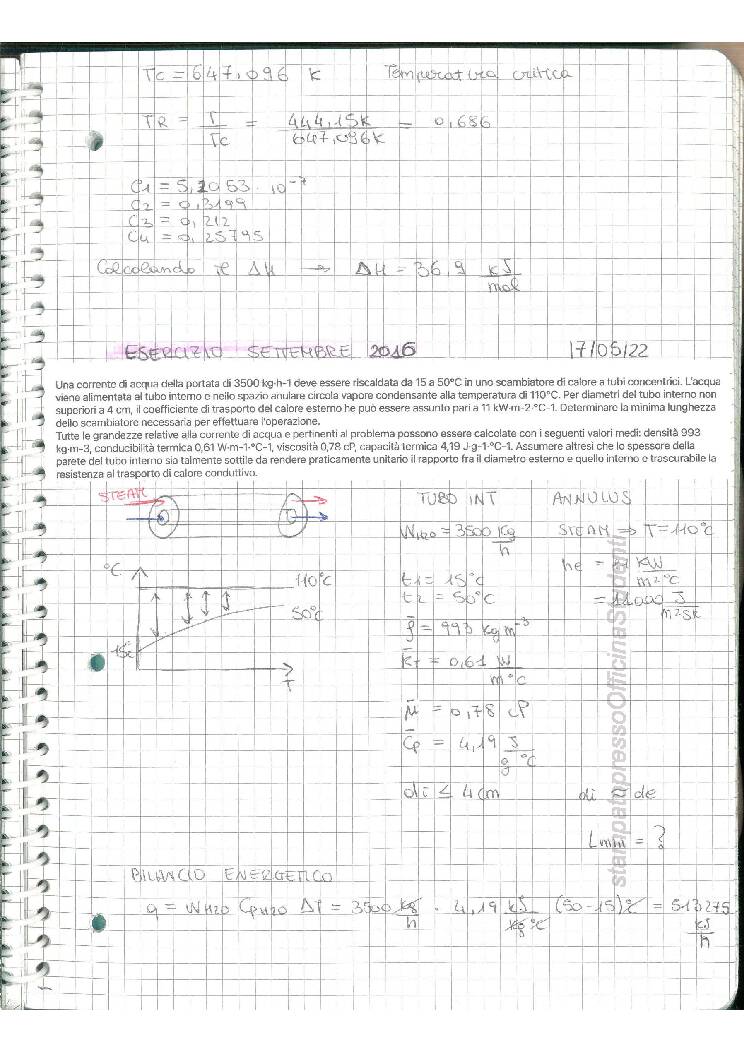 Tc = 647,096 K Temperatura critica
TR = T/Tc = 444,15K/647,096K = 0,686
C1 = 5,2053 · 10⁻⁷
C2 = 0,3199
C3 = 0,212
C4 = 0,25795
Calcolando il ΔH → ΔH = 36,9 kJ/mol
ESERCIZIO SETTEMBRE 2016 17/05/22
Una corrente di acqua della portata di 3500 kg·h-1 deve essere riscaldata da 15 a 50°C in uno scambiatore di calore a tubi concentrici. L'acqua
viene alimentata al tubo interno e nello spazio anulare circola vapore condensante alla temperatura di 110°C. Per diametri del tubo interno non
superiori a 4 cm, il coefficiente di trasporto del calore esterno he può essere assunto pari a 11 kW·m-2·°C-1. Determinare la minima lunghezza
dello scambiatore necessaria per effettuare l'operazione.
Tutte le grandezze relative alla corrente di acqua e pertinenti al problema possono essere calcolate con i seguenti valori medi: densità 993
kg·m-3, conducibilità termica 0,61 W·m-1·°C-1, viscosità 0,78 cP, capacità termica 4,19 J·g-1·°C-1. Assumere altresì che lo spessore della
parete del tubo interno sia talmente sottile da rendere praticamente unitario il rapporto fra il diametro esterno e quello interno e trascurabile la
resistenza al trasporto di calore conduttivo.
STEAM TUBO INT ANNULUS
WH2O = 3500 Kg/h STEAM ⇒ T=110°C
°C 110°C he = 11 KW/m²°C
t1 = 15°C
50°C t2 = 50°C = 11000 J/m²sK
ρ̄ = 993 kg m⁻³
15° k̄T = 0,61 W/m°C
T
μ̄ = 0,78 cP
C̄p = 4,19 J/g °C
di ≤ 4cm di ≈ de
Lmin = ?
stampatopressoOfficinaStudenti
BILANCIO ENERGETICO
q = WH2O CpH2O ΔT = 3500 kg/h · 4,19 kJ/kg°C (50-15)°C = 513275 kJ/h